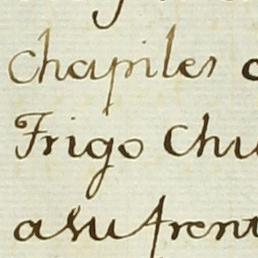 chapiles
Frigo Chu
asufrent